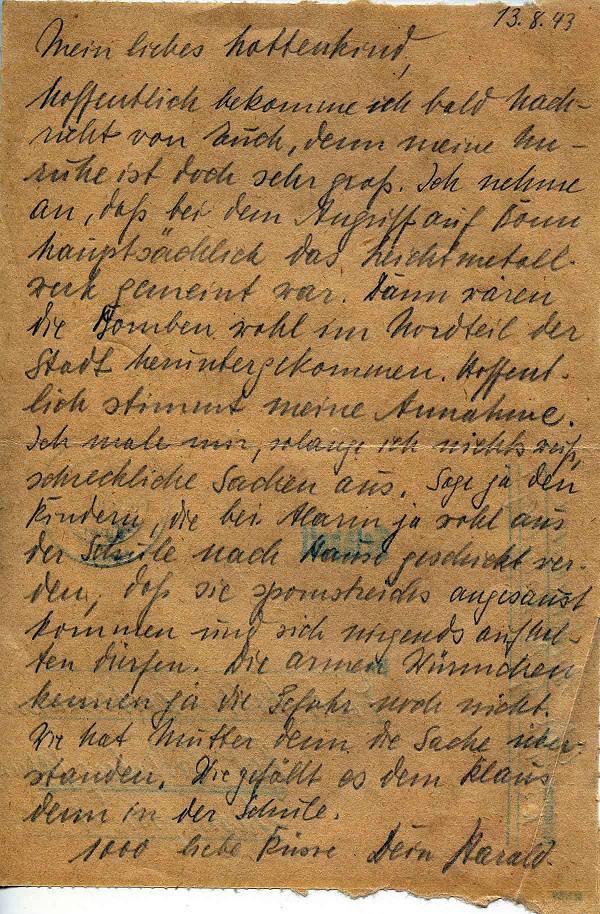 13.8.43
Mein liebes Lottenkind,
hoffentlich bekomme ich bald Nach-
richt von Euch, denn meine Un-
ruhe ist doch sehr groß. Ich nehme
an, daß bei dem Angriff auf Bonn
hauptsächlich das Leichtmetall-
werk gemeint war. Dann wären
die Bomben wohl im Nordteil der
Stadt heruntergekommen. Hoffent-
lich stimmt meine Annahme.
Ich male mir, solange ich nichts weiß,
schreckliche Sachen aus. Sage ja den
Kindern, die bei Alarm ja wohl aus
der Schule nach Hause geschickt wer-
den, daß sie spornstreichs angesaust
kommen und sich nirgends aufhal-
ten dürfen. Die armen Würmchen
kennen ja die Gefahr noch nicht.
Wie hat Mutter denn die Sache über-
standen. Wie gefällt es dem Klaus
denn in der Schule.
1000 liebe Küsse Dein Harald.